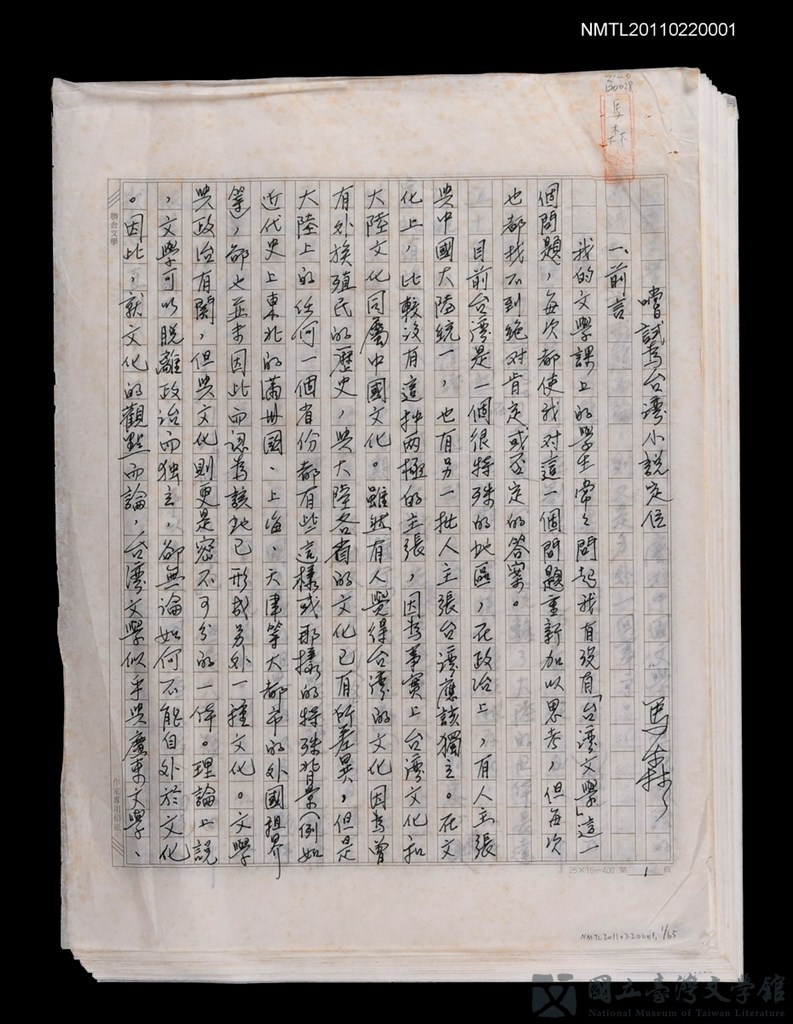 NMTL20110220001
馬森
嚐試為台灣小說定位
馬森
一、前言
我的文學課上的學生常々問起我有沒有「台灣文學」這一
個問題，每次都使我对這一個問題重新加以思考，但每次
也都找不到絕对肯定或否定的答案。
目前台灣是一個很特殊的地區，在政治上，有人主張
與中國大陸統一，也有另一批人主張台灣應該獨立。在文
化上，比較沒有這种兩極的主張，因為事實上台灣文化和
大陸文化同屬中國文化。雖然有人覺得台灣的文化因為曾
有外族殖民的歷史，與大陸各省的文化已有所差異，但是
大陸上的任何一個省份都有些這樣或那樣的特殊背景（例如
近代史上東北的滿州國、上海、天津等大都市的外國租界
等，卻也並未因此而認為該地已形成另外一種文化。文學
與政治有關，但與文化則更是密不可分的一体。理論上說
，文學可以脫離政治而独立，卻無論如何不能自外於文化
。因此，就文化的觀點而論，台灣文學似乎與廣東文學、
聯合文學
作家專用稿紙
25×16=400 第 1 頁
NMTL20110220001, 1/65
國立臺灣文學館
National Museum of Taiwan Literature